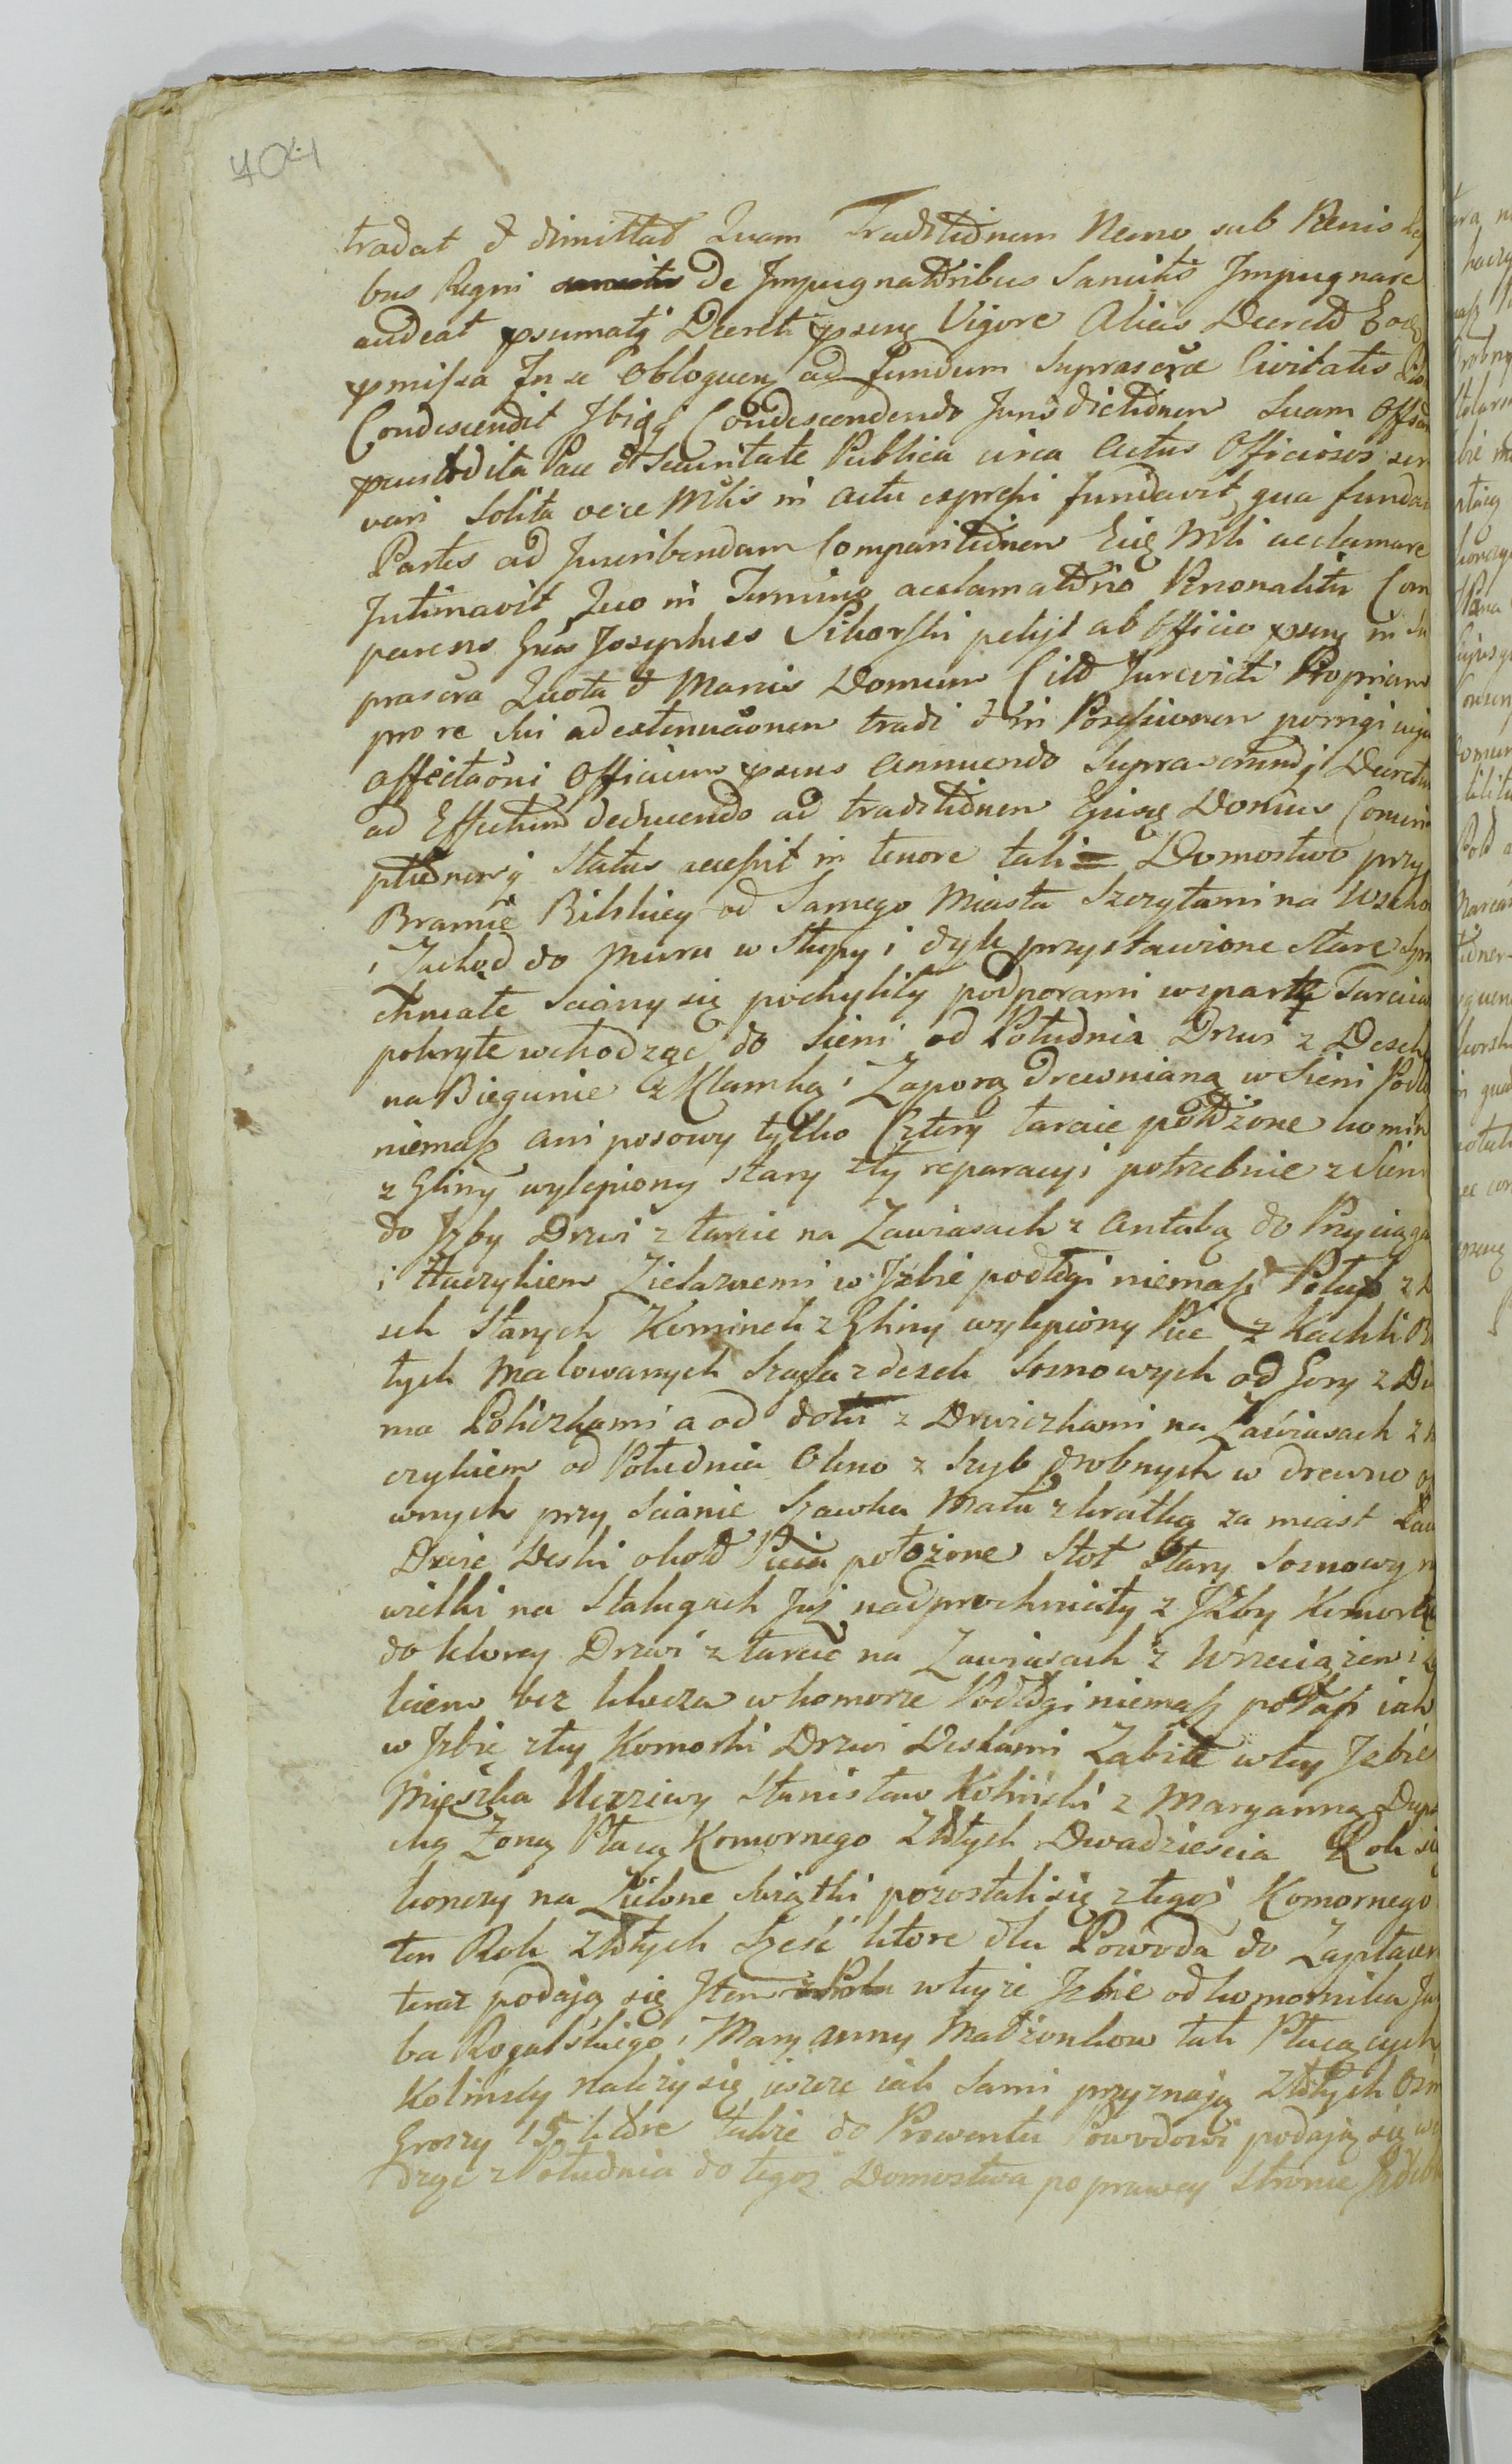 404
tradat et dimittat Quam Traditionem Nemo sub Paenis Le
bus Regni de Impugnatoribus Sancitis Impugnare
audeat psumatq Decreti psens Vigore Alias Decreto Eod
pmissa In se Obloquens ad fundum Suprascrae Civitatis
Condescendit Ibiqq Condescendendo Jurisdictionem Suam Offi
pcustodita Pace et Securitate Publica circa Actus Officiosos ser
vari Solita voce Mlis in actu expressi fundavit, qua funda
Partes ad Inscribendam Comparitionem Eius Mli acclamare
Intimavit Quo in Termino acclamationis Personaliter Com
parens Gnus Josephus Sikorski petijt ab Officio psens in Su
prascra Quota et Manis Domum Cito Jurevicti Propriam
pro re sui ad extenuaonem tradi et in Possessionem porrigi cuju
affectaoni Officium psens Annuendo Suprascrumq Decretum
ad Effectum deducendo ad traditionem Ejusq Domus Conscri
ptionemq Status accessit in tenore tali = Domostwo przy
Bramie Bilskiey od Samego Miasta Szczytami na Wscho
i Zachod do Muru w Słupy i dyle przystawione stare Spru
chniałe Sciany się pochyliły podporami wsparte Tarcica
pokryte wchodząc do Sieni od Południa Drzwi z Desek
na Biegunie z Klamką i Zaporą drewnianą w Sieni Podło
niemasz ani posowy tylko Cztery tarcie położone komin
z Gliny wylepiony stary zły reparacyi potrzebuie z Sieni
do Izby Drzwi z tarcic na Zawiasach z Antabą do Przyciąga
i Haczykiem Zielaznemi w Izbie podłogi niemasz Połap z de
sek Starych Kominek z Gliny wylepiony Piec z Kachli Bi
łych Malowanych Szafa z desek Sosnowych od Gory z Dw
ma Policzkami a od dołu z Drwiczkami na Zawiasach z ha
czykiem od Południa Okno z Szyb drobnych w drewno op
wnych przy Scianie Szawka Mała z kratką za miast Ław
Dwie Deski około Pieca położone Stoł Stary Sosnowy n
wielki na Stalugach Już nadpruchniały z Izby Komorka
do ktorey Drzwi z tarcic na Zawiasach z Wrzeciązem i
kiem bez klucza w komorze Podłogi niemasz połap iak
w Izbie z tey Komorki Drzwi Deskami Zabite w tey Izbie
Mieszka Uczciwy Stanisław Koliński z Maryanną Dup
ską Zoną Płacą Komornego Złotych Dwadziescia Rok się
konczy na Zielone Swiątki pozostali się z tegoż Komornego
ten Rok Złotych Sześć ktore dla Powoda do Zapłacen
teraz podają się Item w teyże Izbie od komornika Ja
ba Rogalskiego i Maryanny Małżonkow tak Płacących
Kolińscy należy się ieszcze iak Sami przyznają Złotych Osm
Groszy 15 ktore także do Prowentu Powodowi podają się w
drzwi z Południa do tegoż Domostwa po prawey Stronie